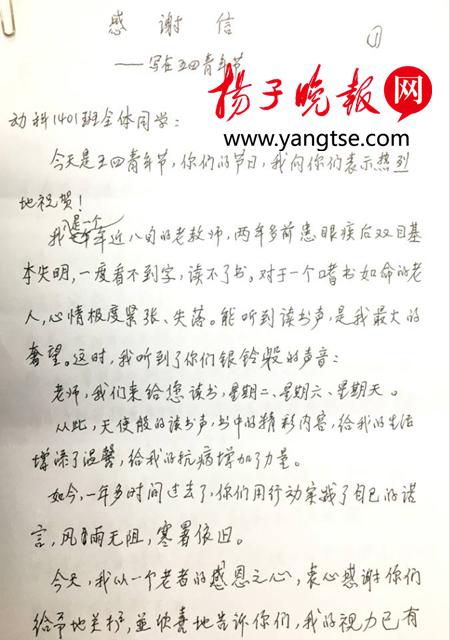 感谢信
①
——写在五四青年节
扬子晚报网
www.yangtse.com
动科1401班全体同学：
今天是五四青年节，你们的节日，我向你们表示热烈
地祝贺！
我是一个年近八旬的老教师，两年多前患眼疾后双目基
本失明，一度看不到字，读不了书。对于一个嗜书如命的老
人，心情极度紧张、失落。能听到读书声，是我最大的
奢望。这时，我听到了你们银铃般的声音：
老师，我们来给您读书，星期二、星期六、星期天。
从此，天使般的读书声，书中的精彩内容，给我的生活
增添了温馨，给我的抗病增加了力量。
如今，一年多时间过去了，你们用行动实践了自己的诺
言，风雨无阻，寒暑依旧。
今天，我以一个老者的感恩之心，衷心感谢你们
给予地关护，並欣喜地告诉你们，我的视力已有